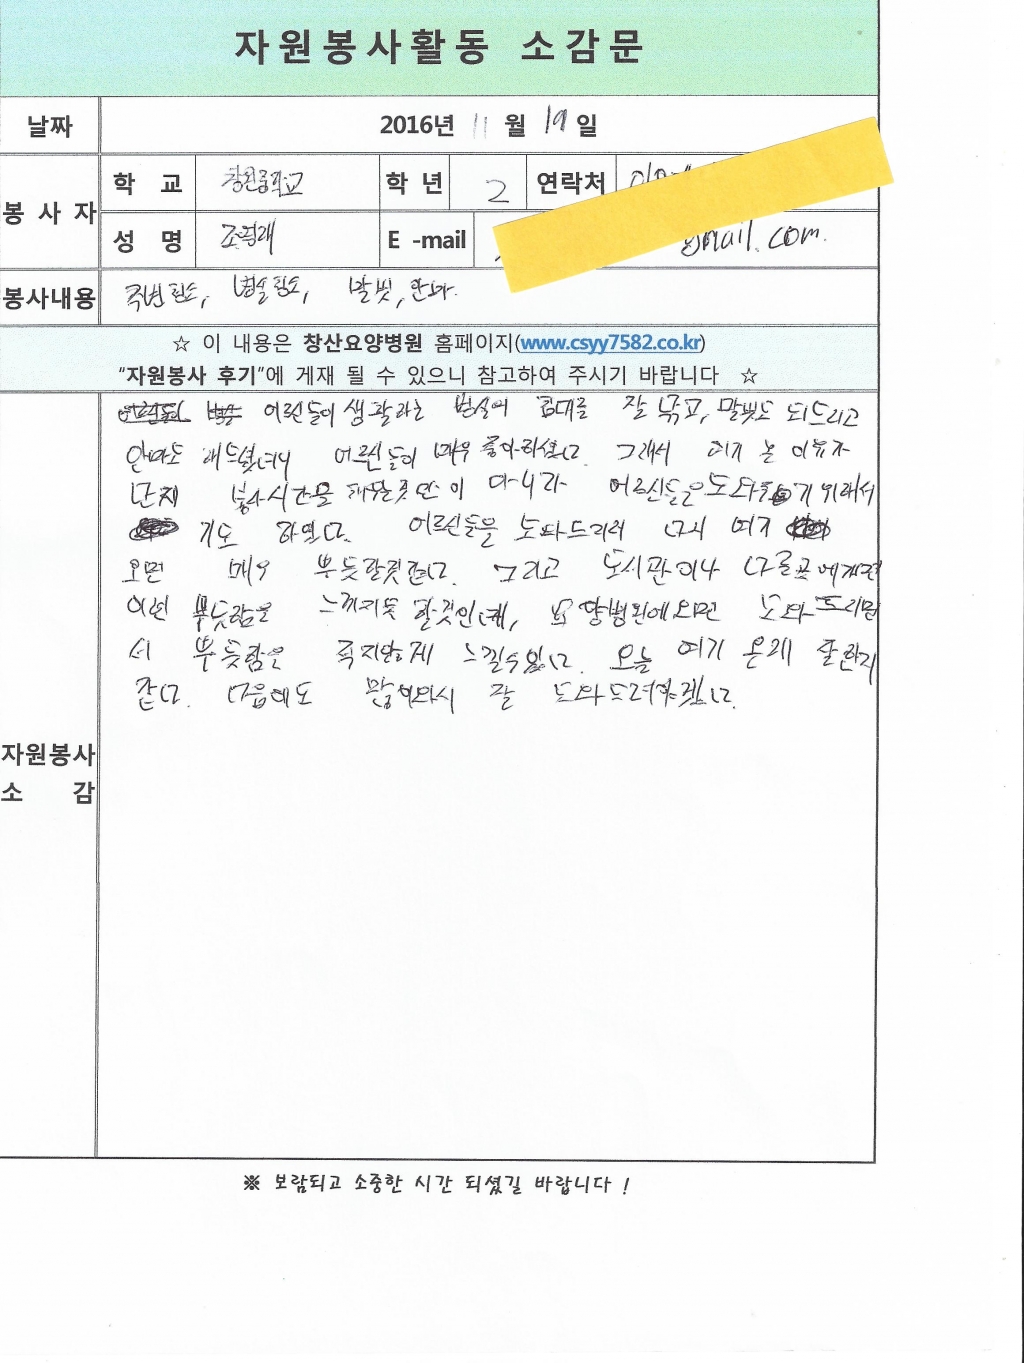 자원봉사활동 소감문
날짜 2016년 11 월 19 일
봉 사 자
학 교 창원중학교 학 년 2 연락처
성 명 E -mail gmail.com.
봉사내용 병실청소, 말벗, 안마.
☆ 이 내용은 창산요양병원 홈페이지(www.csyy7582.co.kr)
"자원봉사 후기"에 게재 될 수 있으니 참고하여 주시기 바랍니다 ☆
자원봉사
소 감
어르신들이 생활하는 병실에 침대를 잘 닦고, 말벗도 되드리고
안마도 해드렸더니 어르신들이 매우 좋아하셨다. 그래서 여기 온 이유가
단지 봉사시간을 채울뿐만이 아니라 어르신들을 도와 기 위해서
기도 하였다. 어르신들을 도와드리러 다시 여기
오면 매우 뿌듯할것같다. 그리고 도서관이나 다른곳에서도
이런 뿌듯함은 느끼지못 할것인데, 요양병원에오면 도와드리면
서 뿌듯함은 느낄수있다. 오늘 여기 온게 잘한거
같다. 다음에도 많이와서 잘 도와드려야겠다.
※ 보람되고 소중한 시간 되셨길 바랍니다 !